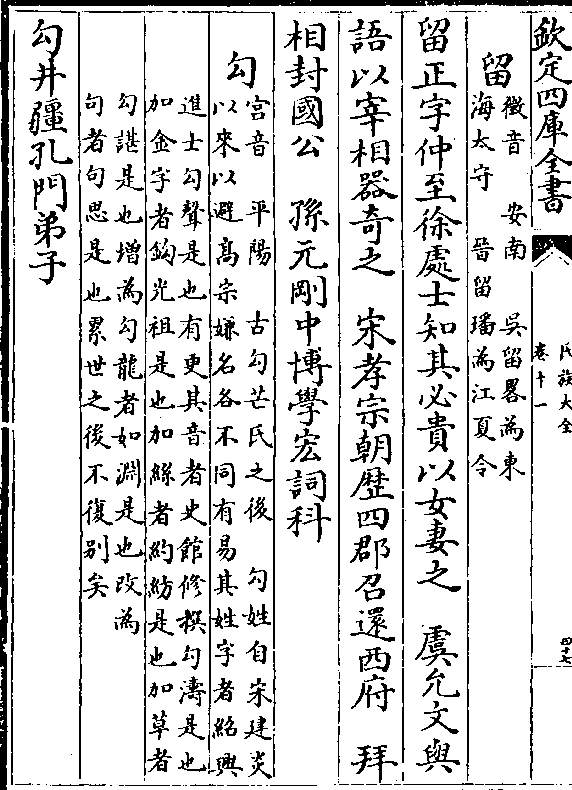 欽定四庫全書
氏族大全
卷十一
四十七
留
徵音　安南　吳留畧為東
海太守　晉留璠為江夏令
留正字仲至徐處士知其必貴以女妻之　虞允文與
語以宰相器奇之　宋孝宗朝歷四郡召還西府　拜
相封國公　孫元剛中博學宏詞科
勾
宮音　平陽　古勾芒氏之後　勾姓自宋建炎
以來以避髙宗嫌名各不同有易其姓字者紹興
進士勾聲是也有更其音者史館修撰勾濤是也
加金字者鈎光祖是也加絲者約紡是也加草者
勾諶是也増為勾龍者如淵是也改為
句者句思是也累世之後不復别矣
勾井疆孔門弟子